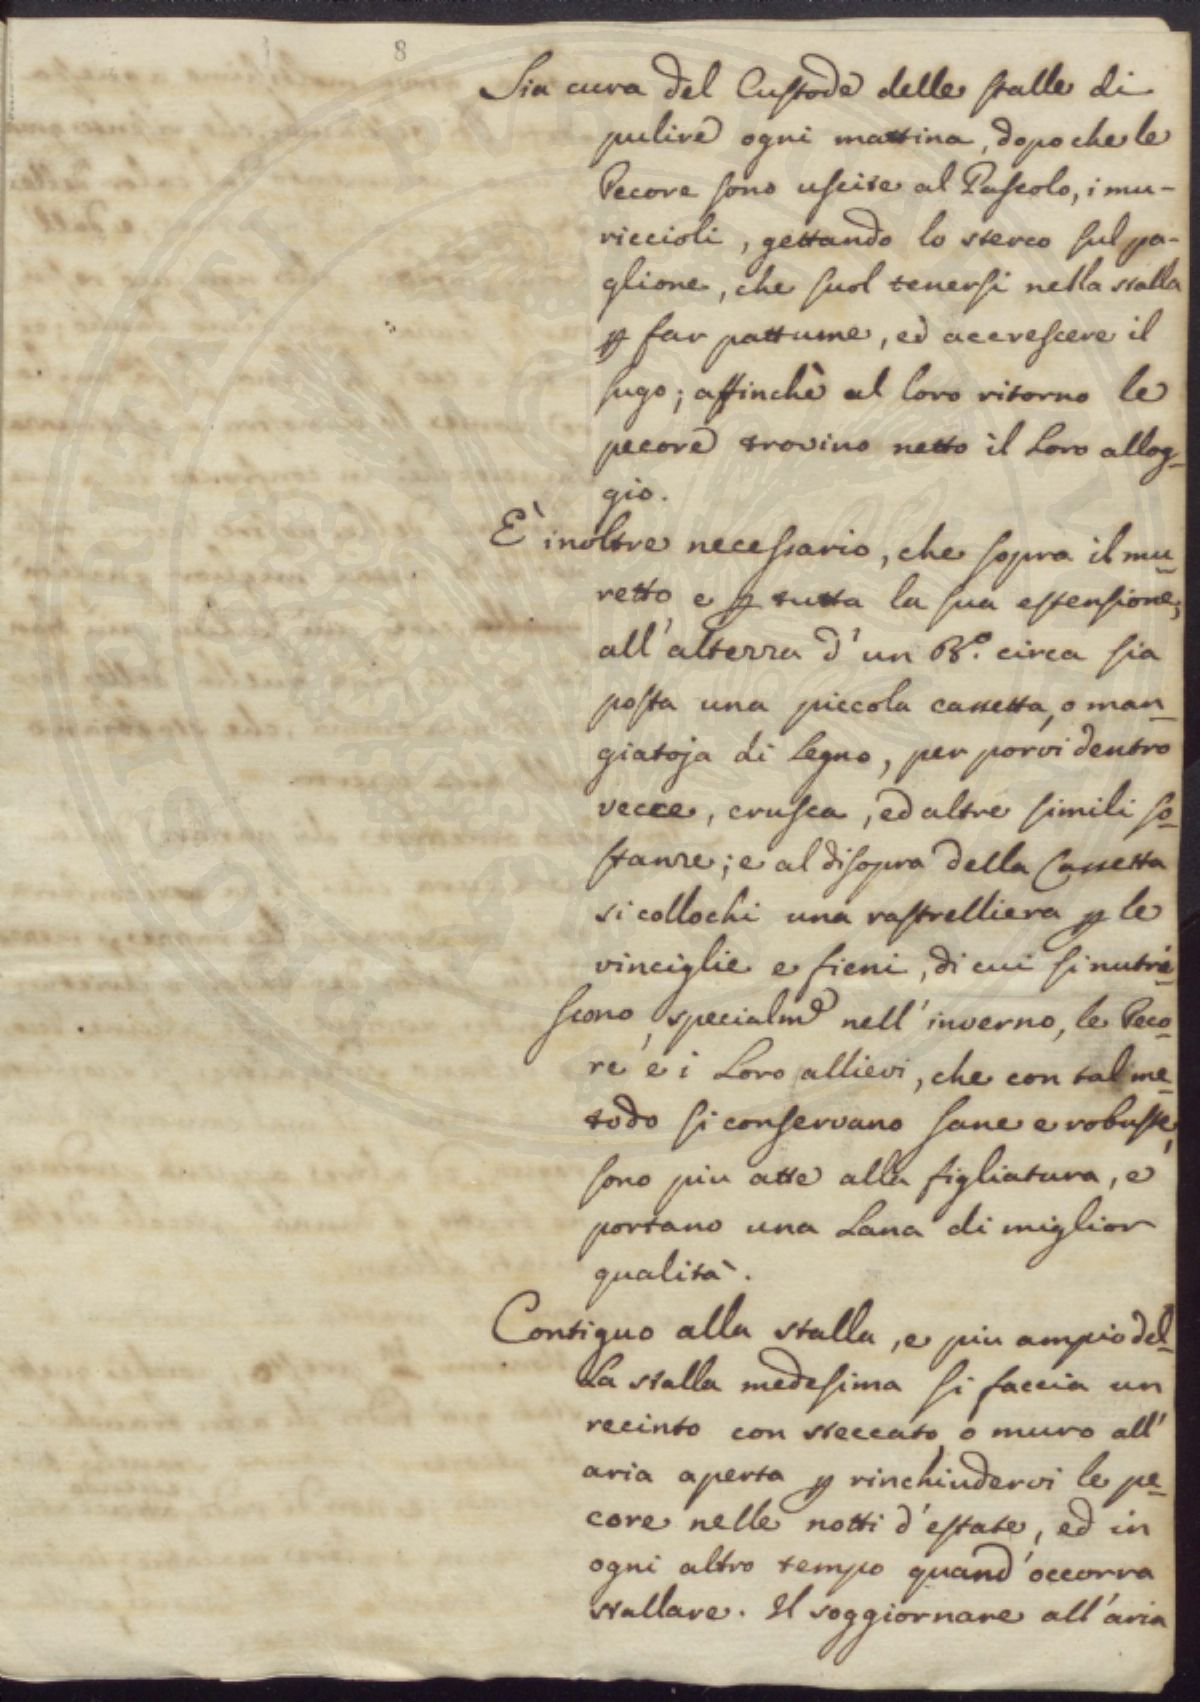 8
Sia cura del Custode delle stalle di
pulire ogni mattina, dopo che le
Pecore sono uscite al Pascolo, i mu-
riccioli, gettando lo sterco sul pa-
glione, che suol tenersi nella stalla
p far pattume, ed accrescere il
sugo; affinchè al loro ritorno le
pecore trovino netto il Loro allog-
gio.
E' inoltre necessario, che sopra il mu-
retto e p tutta la sua estensione,
all'altezza d'un Bº. circa sia
posta una piccola cassetta, o man-
giatoja di Legno, per porvi dentro
vecce, crusca, ed altre simili so-
stanze; e al disopra della Cassetta
si collochi una rastrelliera p le
vinciglie e fieni, di cui si nutri-
scono, specialme nell'inverno, le Peco-
re e i Loro allievi, che con tal me-
todo si conservano sane e robuste,
sono piu atte alla figliatura, e
portano una Lana di miglior
qualità.
Contiguo alla stalla, e piu ampio del-
La stalla medesima si faccia un
recinto con steccato, o muro all'
aria aperta p rinchiudervi le pe-
core nelle notti d'estate, ed in
ogni altro tempo quand'occorra
stallare. Il soggiornare all'aria